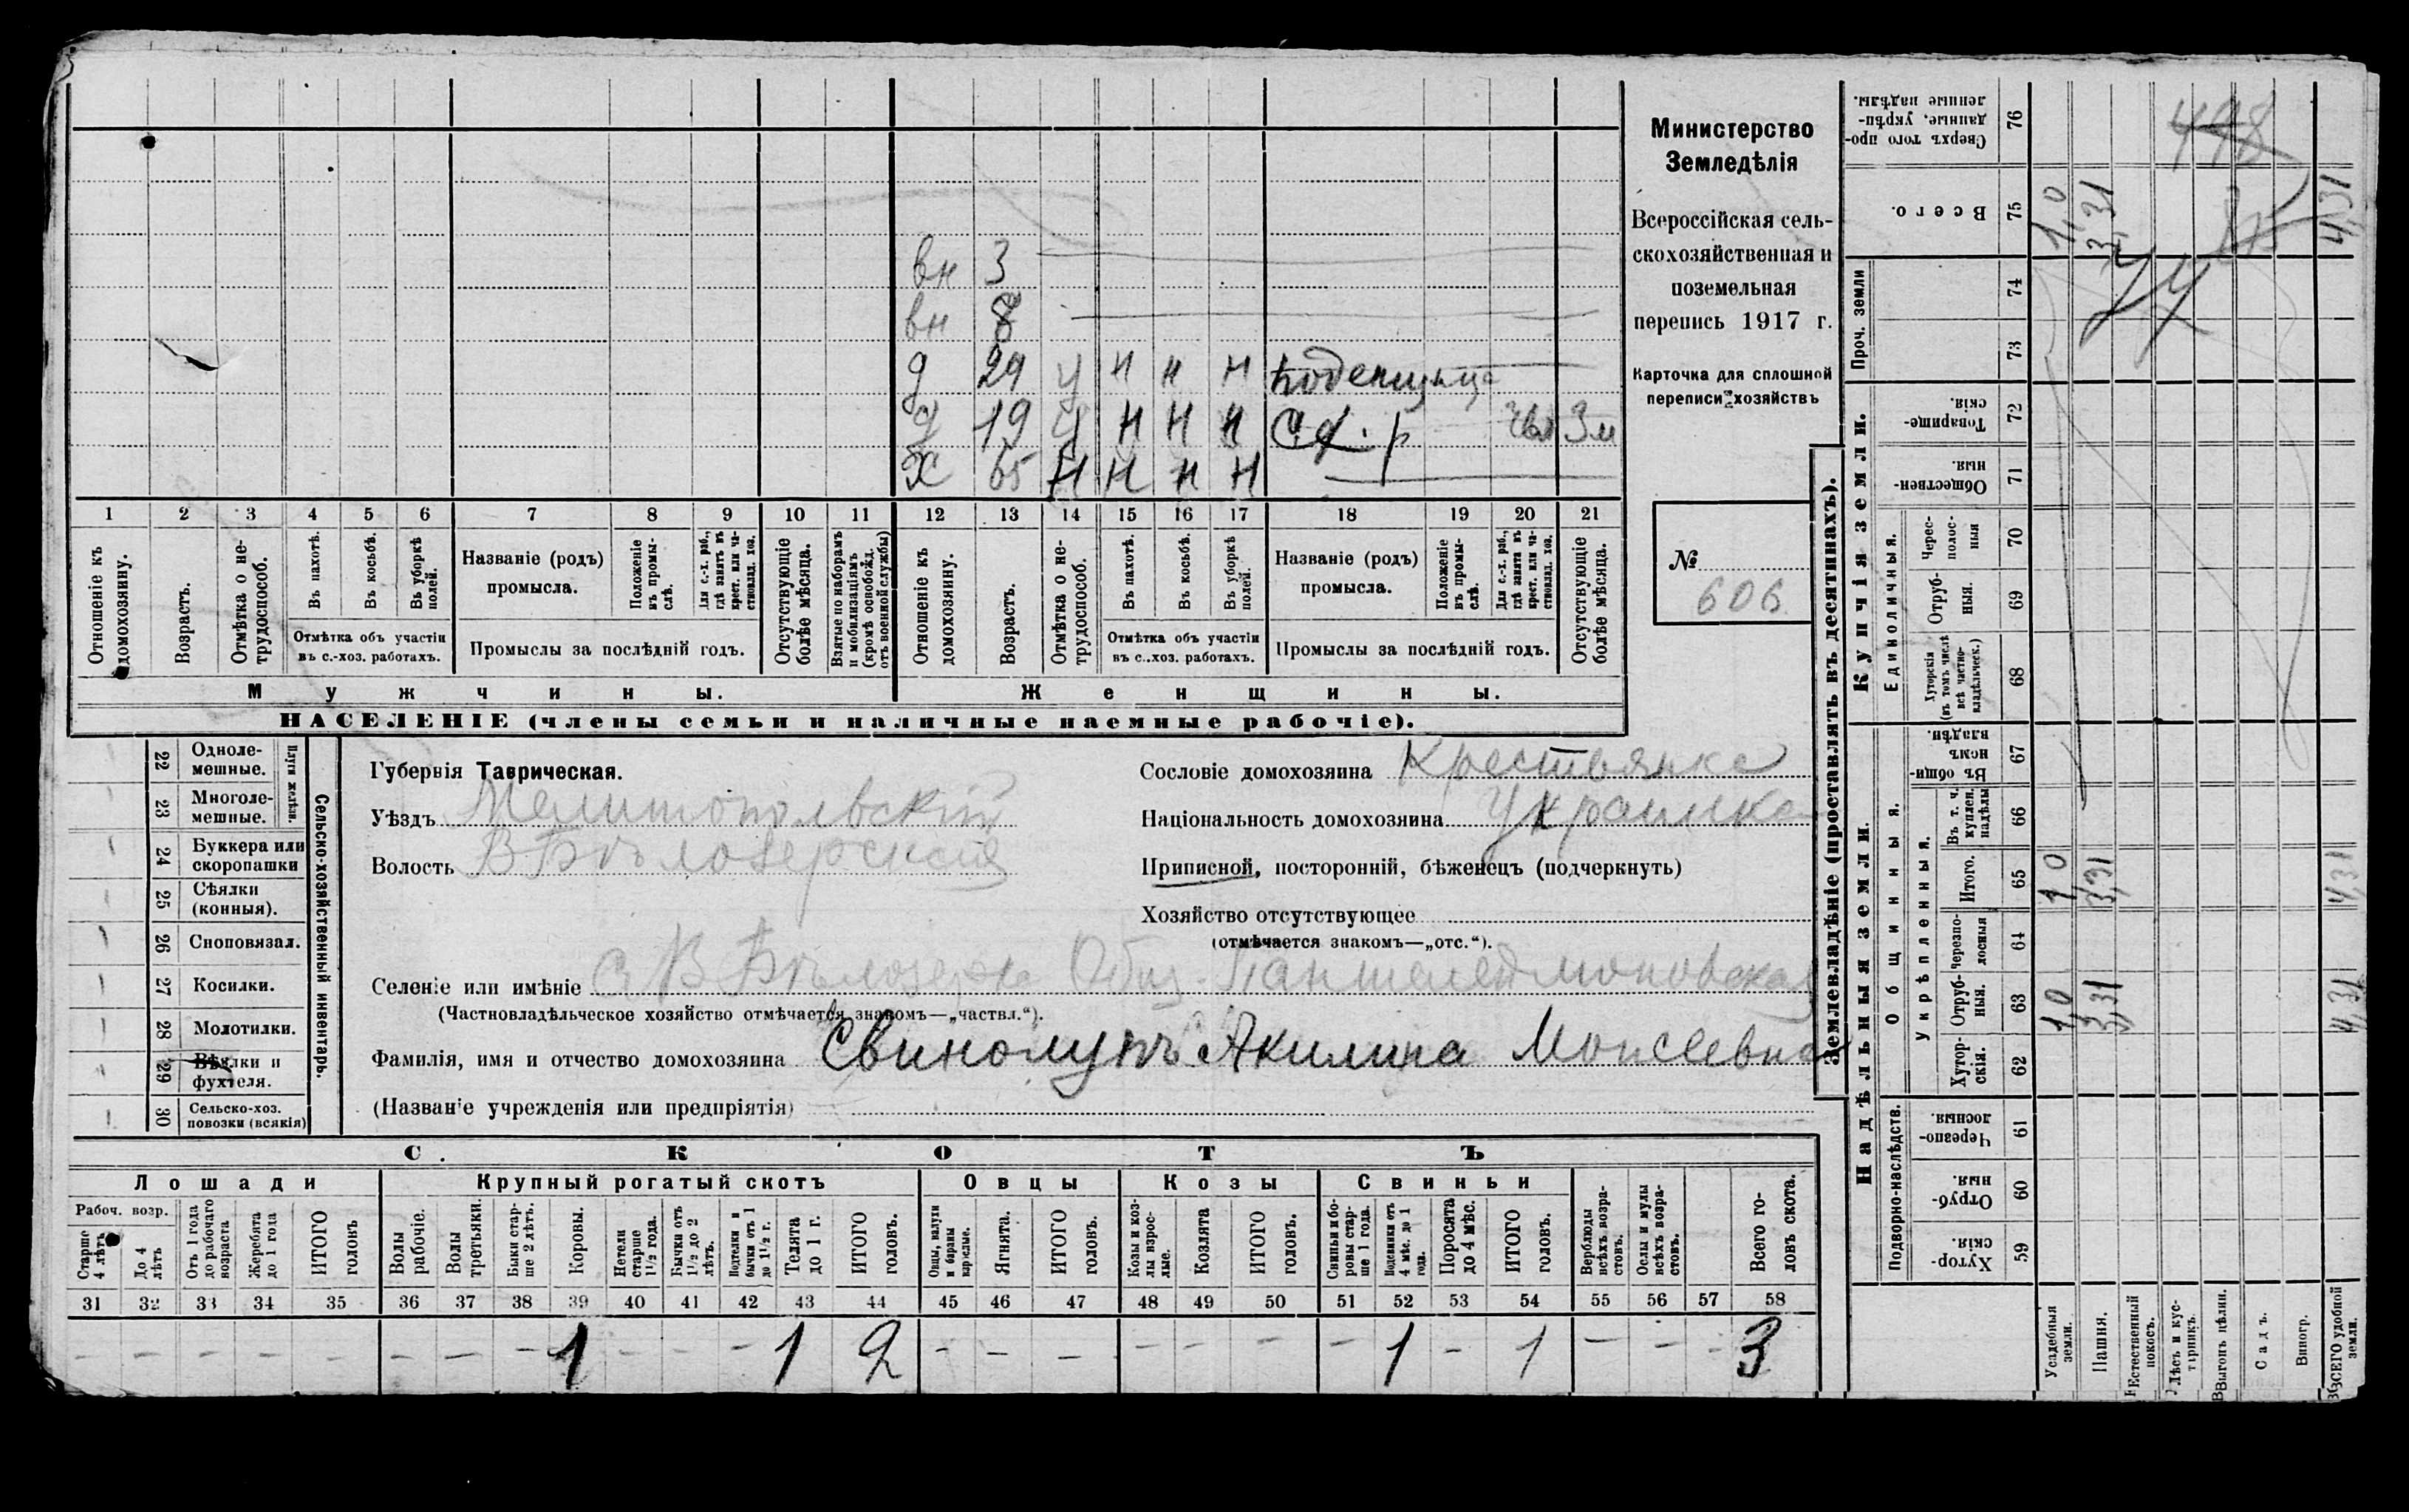 вн 3
вн 8
д 29 у н н н поденщица
д 19 у н н н с.х.р чвл 3м
х 65 н н н н
1 2 3 4 5 6 7 8 9 10 11 12 13 14 15 16 17 18 19 20 21
Отношеніе къ домохозяину.
Возрастъ.
Отмѣтка о не-трудоспособ.
Въ пахотѣ.
Въ косьбѣ.
Въ уборкѣ полей.
Отмѣтка объ участіи
въ с.-хоз. работахъ.
Названіе (родъ)
промысла.
Положеніе въ промы-слѣ.
Для с.-х. раб., гдѣ занятъ въ крест. или ча-стновлад. хоз.
Промыслы за послѣдній годъ.
Отсутствующіе болѣе мѣсяца.
Взятые по наборамъ и мобилизаціямъ (кромѣ освобожд. отъ военной службы)
Отношеніе къ домохозяину.
Возрастъ.
Отмѣтка о не-трудоспособ.
Въ пахотѣ.
Въ косьбѣ.
Въ уборкѣ полей.
Отмѣтка объ участіи
въ с.-хоз. работахъ.
Названіе (родъ)
промысла.
Положеніе въ промы-слѣ.
Для с.-х. раб., гдѣ занята въ крест. или ча-стновлад. хоз.
Промыслы за послѣдній годъ.
Отсутствующіе болѣе мѣсяца.
Мужчины.
Женщины.
НАСЕЛЕНІЕ (члены семьи и наличные наемные рабочіе).
Министерство
Земледѣлія
Всероссійская сель-
скохозяйственная и
поземельная
перепись 1917 г.
Карточка для сплошной
переписи хозяйствъ
№
606
22 Однолемешные.
23 Многолемешные.
Плуги желѣзн.
24 Буккера или скоропашки
25 Сѣялки (конныя).
26 Сноповязал.
27 Косилки.
28 Молотилки.
29 Вѣялки и фухтеля.
30 Сельско-хоз. повозки (всякія)
Сельско-хозяйственный инвентарь.
Губернія Таврическая.
Уѣздъ Мелитопольскій
Волость В Бѣлозерская
Сословіе домохозяина Крестьянка
Національность домохозяина Украинка
Приписной, посторонній, бѣженецъ (подчеркнуть)
Хозяйство отсутствующее
(отмѣчается знакомъ—„отс.“).
Селеніе или имѣніе с В Бѣлозерка Общ. Пантелеймоновская
(Частновладѣльческое хозяйство отмѣчается знакомъ—„частвл.“).
Фамилія, имя и отчество домохозяина Свинолупъ Акилина Моисеевна
(Названіе учрежденія или предпріятія)
СКОТЪ
Лошади Крупный рогатый скотъ Овцы Козы Свиньи
Рабоч. возр.
Старше 4 лѣтъ
До 4 лѣтъ
Отъ 1 года до рабочаго возраста
Жеребята до 1 года
ИТОГО головъ
Волы рабочіе.
Волы третьяки.
Быки стар-ше 2 лѣтъ.
Коровы.
Нетели старше 1½ года.
Бычки отъ 1½ до 2 лѣтъ.
Подтелки и бычки отъ 1 до 1½ г.
Телята до 1 г.
ИТОГО головъ.
Овцы, валухи и бараны взрослые.
Ягнята.
ИТОГО головъ.
Козы и коз-лы взрос-лые.
Козлята
ИТОГО головъ.
Свиньи и бо-ровы стар-ше 1 года.
Подсвинки отъ 4 мѣс. до 1 года.
Поросята до 4 мѣс.
ИТОГО головъ.
Верблюды всѣхъ возра-стовъ.
Ослы и мулы всѣхъ возра-стовъ.
Всего го-ловъ скота.
31 32 33 34 35 36 37 38 39 40 41 42 43 44 45 46 47 48 49 50 51 52 53 54 55 56 57 58
– – – – – – – – 1 – – – 1 2 – – – – – – – 1 – 1 – – – 3
Землевладѣніе (проставлять въ десятинахъ).
Надѣльныя земли.
Купчія земли.
Проч. земли
Подворно-наслѣдств.
Общинныя.
Укрѣпленныя.
Единоличныя.
Сверхъ того про-данные, укрѣп-ленные надѣлы. 76
Всего. 75
74
73
Товарище-скія. 72
Обществен-ныя. 71
Черес-полос-ныя 70
Отруб-ныя. 69
Хуторскія (въ томъ числѣ всѣ частно-владѣльческ.) 68
Въ общин-номъ владѣн. 67
Въ т. ч. куплен. надѣлы 66
Итого. 65
Черезпо-лосныя 64
Отруб-ныя. 63
Хутор-скія. 62
Черезпо-лосныя. 61
Отруб-ныя. 60
Хутор-скія. 59
Усадебныя земли.
Пашня.
Естественный покосъ.
Лѣсъ и кус-тарникъ.
Выгонъ цѣлин.
Садъ.
Виногр.
ВСЕГО удобной земли.
498
1,0 3,31 4,31
1,0 3,31 4,31
1,0 3,31 4,31